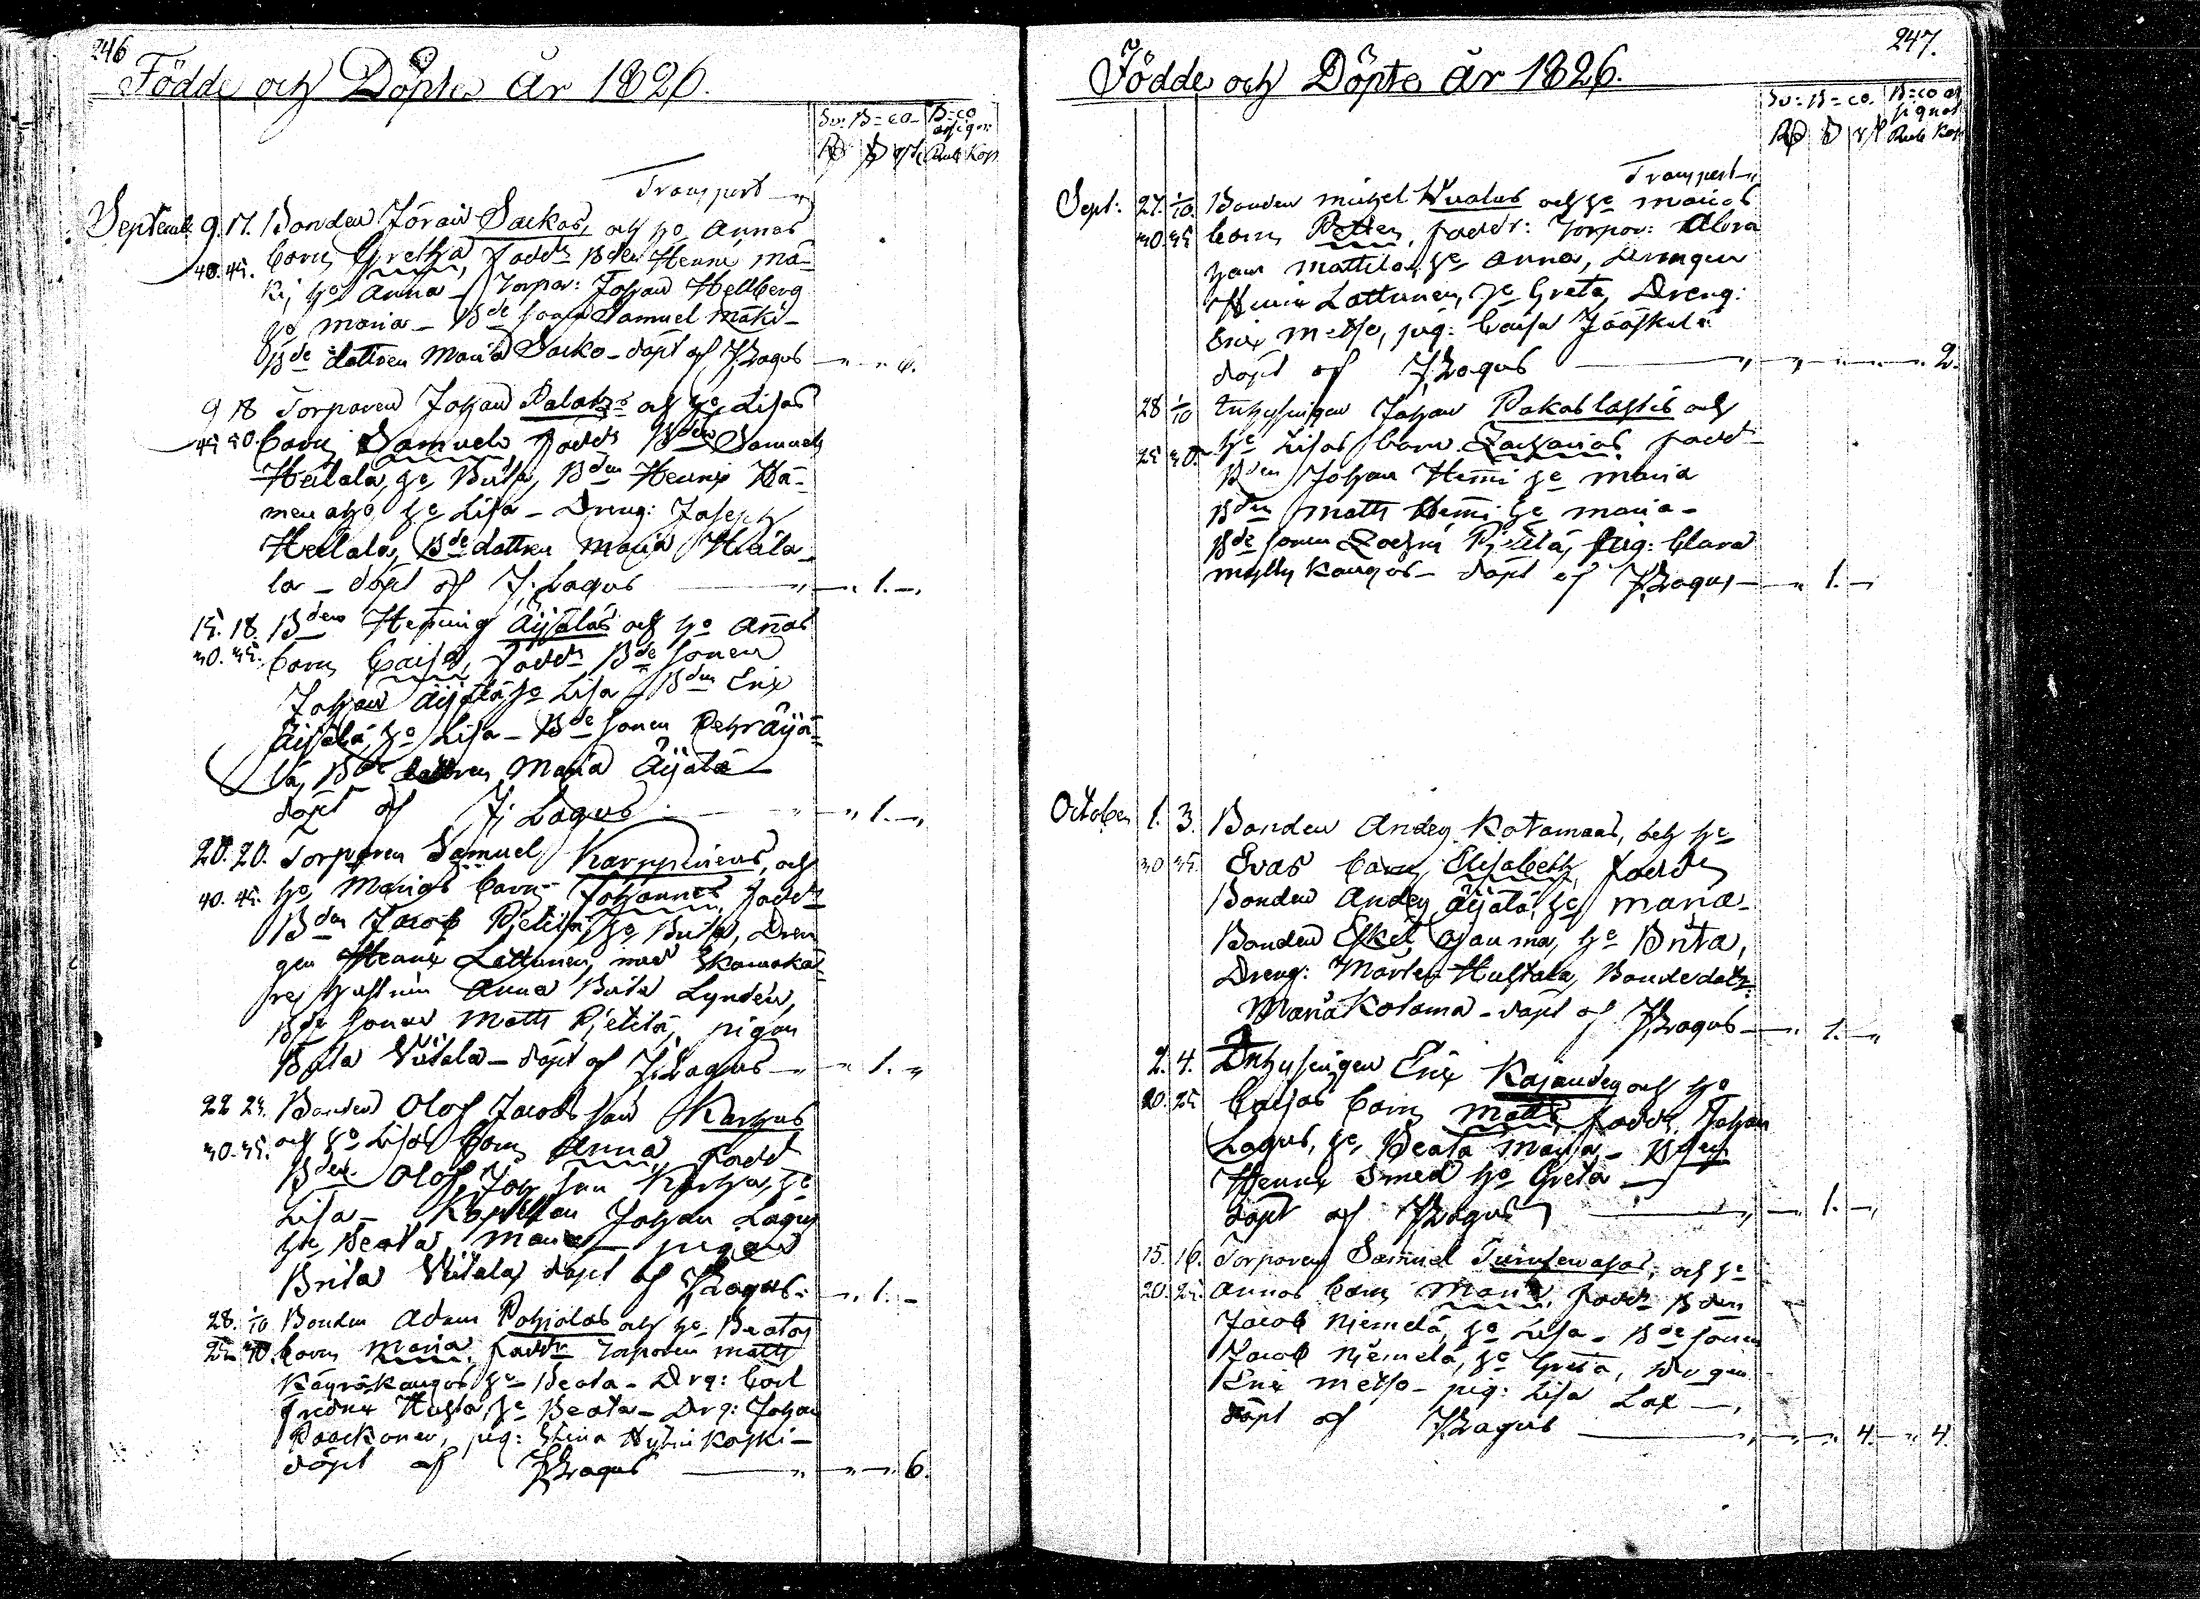 246
Födde och Döpte år 1826.
Sv: B=co. B=co
assign:
Rd Rub Kop
Transport
Septemb. 9. 17. Bonden Jöran Sackos, och ho Annas
40. 45. barn Gretha, faddr Bden Henric Mä=
ki, ho Anna - Torpar: Johan Hellberg
ho Maria - Bde sonen Samuel Mäki -
Bde dottren Maria Sacko - döpt af J: Lagus 6.
9 18 Torparen Johan Palahos och ho Lisas
45 50. barn Samuel, faddr Bden Samuel
Heilala, ho Brita, Bden Henric Hä=
men aho ho Lisa - Dreng: Joseph
Heilala, Bde dottren Maria Heila=
la - döpt af J: Lagus 1.
15. 18. Bden Henning Äijälas och ho Annas
30. 35. barn Caisa, faddr Bde sonen
Johan Äijälä ho Lisa - Bden Eric
Äijälä, ho Lisa - Bde sonen Pehr Äijä=
lä, Bde dottren Maria Äijälä
döpt af J: Lagus 1.
20. 20. Torparen Samuel Karppinens, och
40. 45. ho Marias barn Johannes, faddr
Bden Jacob Pietilä, ho Brita, Dren
gen Henric Lattunen, med
Anna Brita Lyndén,
Bde sonen Matts Pietilä, pigan
Brita Viitala - döpt af J: Lagus 1.
22 25. Bonden Olof Jacobsson Karhus
30. 35. och ho Lisas barn Anna, fadd
Bden Olof Joh son Karhu, ho
Lisa - Kapellan Johan Lagus
ho Beata Maria - pigan
Brita Viitala, döpt af J: Lagus. 1.
28. 1/10 Bonden Adam Pohjolas och ho Beatas
25 30. barn Maria, faddr Torparen Matts
Käyräkangas, ho Beata - Drg: Carl
Fredric Huhta, ho Beata - Drg: Johan
Paackonen, pig: Stina
döpt af J: Lagus 6.
247.
Födde och Döpte år 1826.
Sv: B=co. B=co as
signat
Rd Rub Kop
Transport
Sept: 27. 1/10. Bonden Michel och ho Marias
30. 35 barn Petter, faddr: Torpar: Abra
ham Mattila, ho Anna, Drengen
Henric Lattunen, ho Greta, Dreng:
Eric Metso, pig: Caisa Jääskelä
döpt af J: Lagus 2.
28 1/10 Inhysingen Johan Pakaslahtis och
25 30. ho Lisas barn Zacharias, fadd
Bden Johan Hemmi ho Maria
Bden Matts Hemmi ho Maria -
Bde sonen Zachri Pietilä, pig: Clara
Myllykangas - döpt af J: Lagus 1.
October 1. 3. Bonden Anders Kotamaas, och ho
30 35. Evas barn Elisabeth, fadd
Bonden Anders Äijälä, ho Maria -
Bonden Eskel Ojanma, ho Brita,
Dreng: Mårten Huhtala, Bondedottr:
Maria Kotama - döpt af J: Lagus 1.
2. 4. Inhysingen Eric Kajanders och ho
20. 25 Caisas barn Matts, faddr. Johan
Lagus, ho Beata Maria - Bden
Henric Smed ho Greta
döpt af J: Lagus 1.
15. 16. Torparen Samuel och ho
20. 25. Annas barn Maria, faddr Bden
Jacob Niemelä, ho Lisa - Bde sonen
Jacob Niemelä, ho Greta, Drengen
Eric Metso - pig: Lisa Lax
döpt af J: Lagus 4. 4.